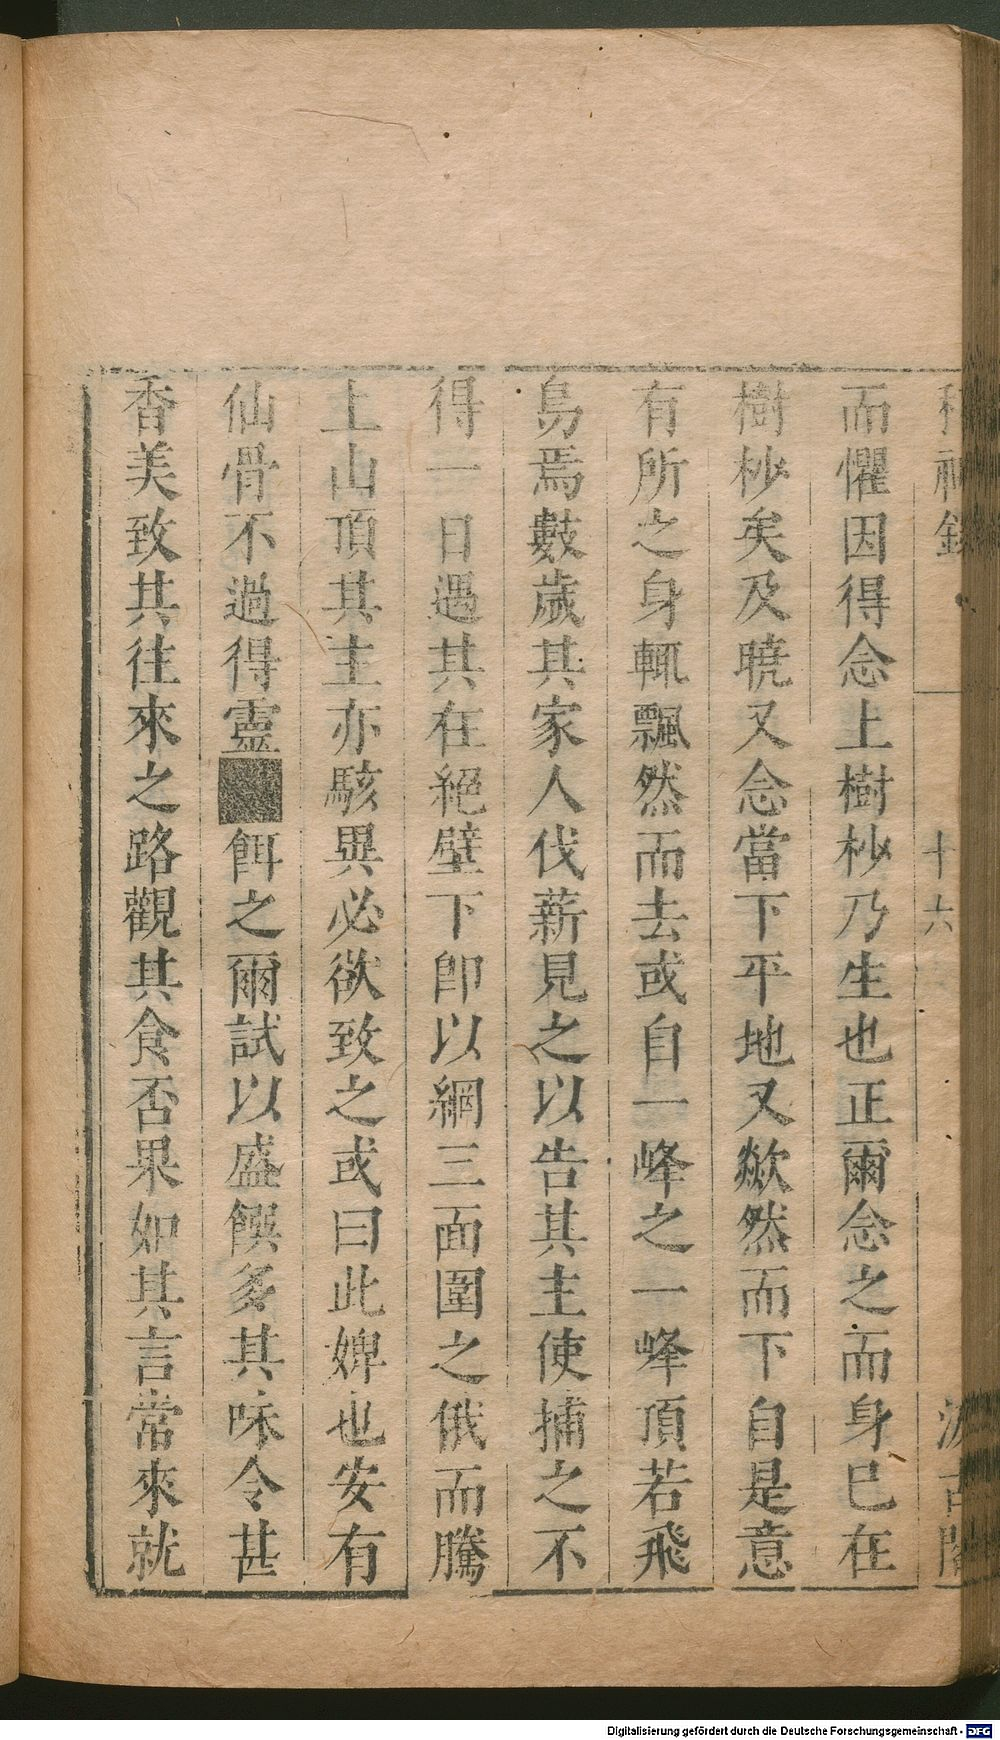 稽神錄 十六 汲古閣
而懼因得念上樹杪乃生也正爾念之而身巳在
樹杪矣及曉又念當下平地又歘然而下自是意
有所之身輒飄然而去或自一峰之一峰頂若飛
鳥焉數歲其家人伐薪見之以告其主使捕之不
得一日遇其在絕壁下卽以網三面圍之俄而騰
上山頂其主亦駭異必欲致之或曰此婢也安有
仙骨不過得靈■餌之爾試以盛饌多其味令甚
香美致其往來之路觀其食否果如其言常來就
Digitalisierung gefördert durch die Deutsche Forschungsgemeinschaft - DFG